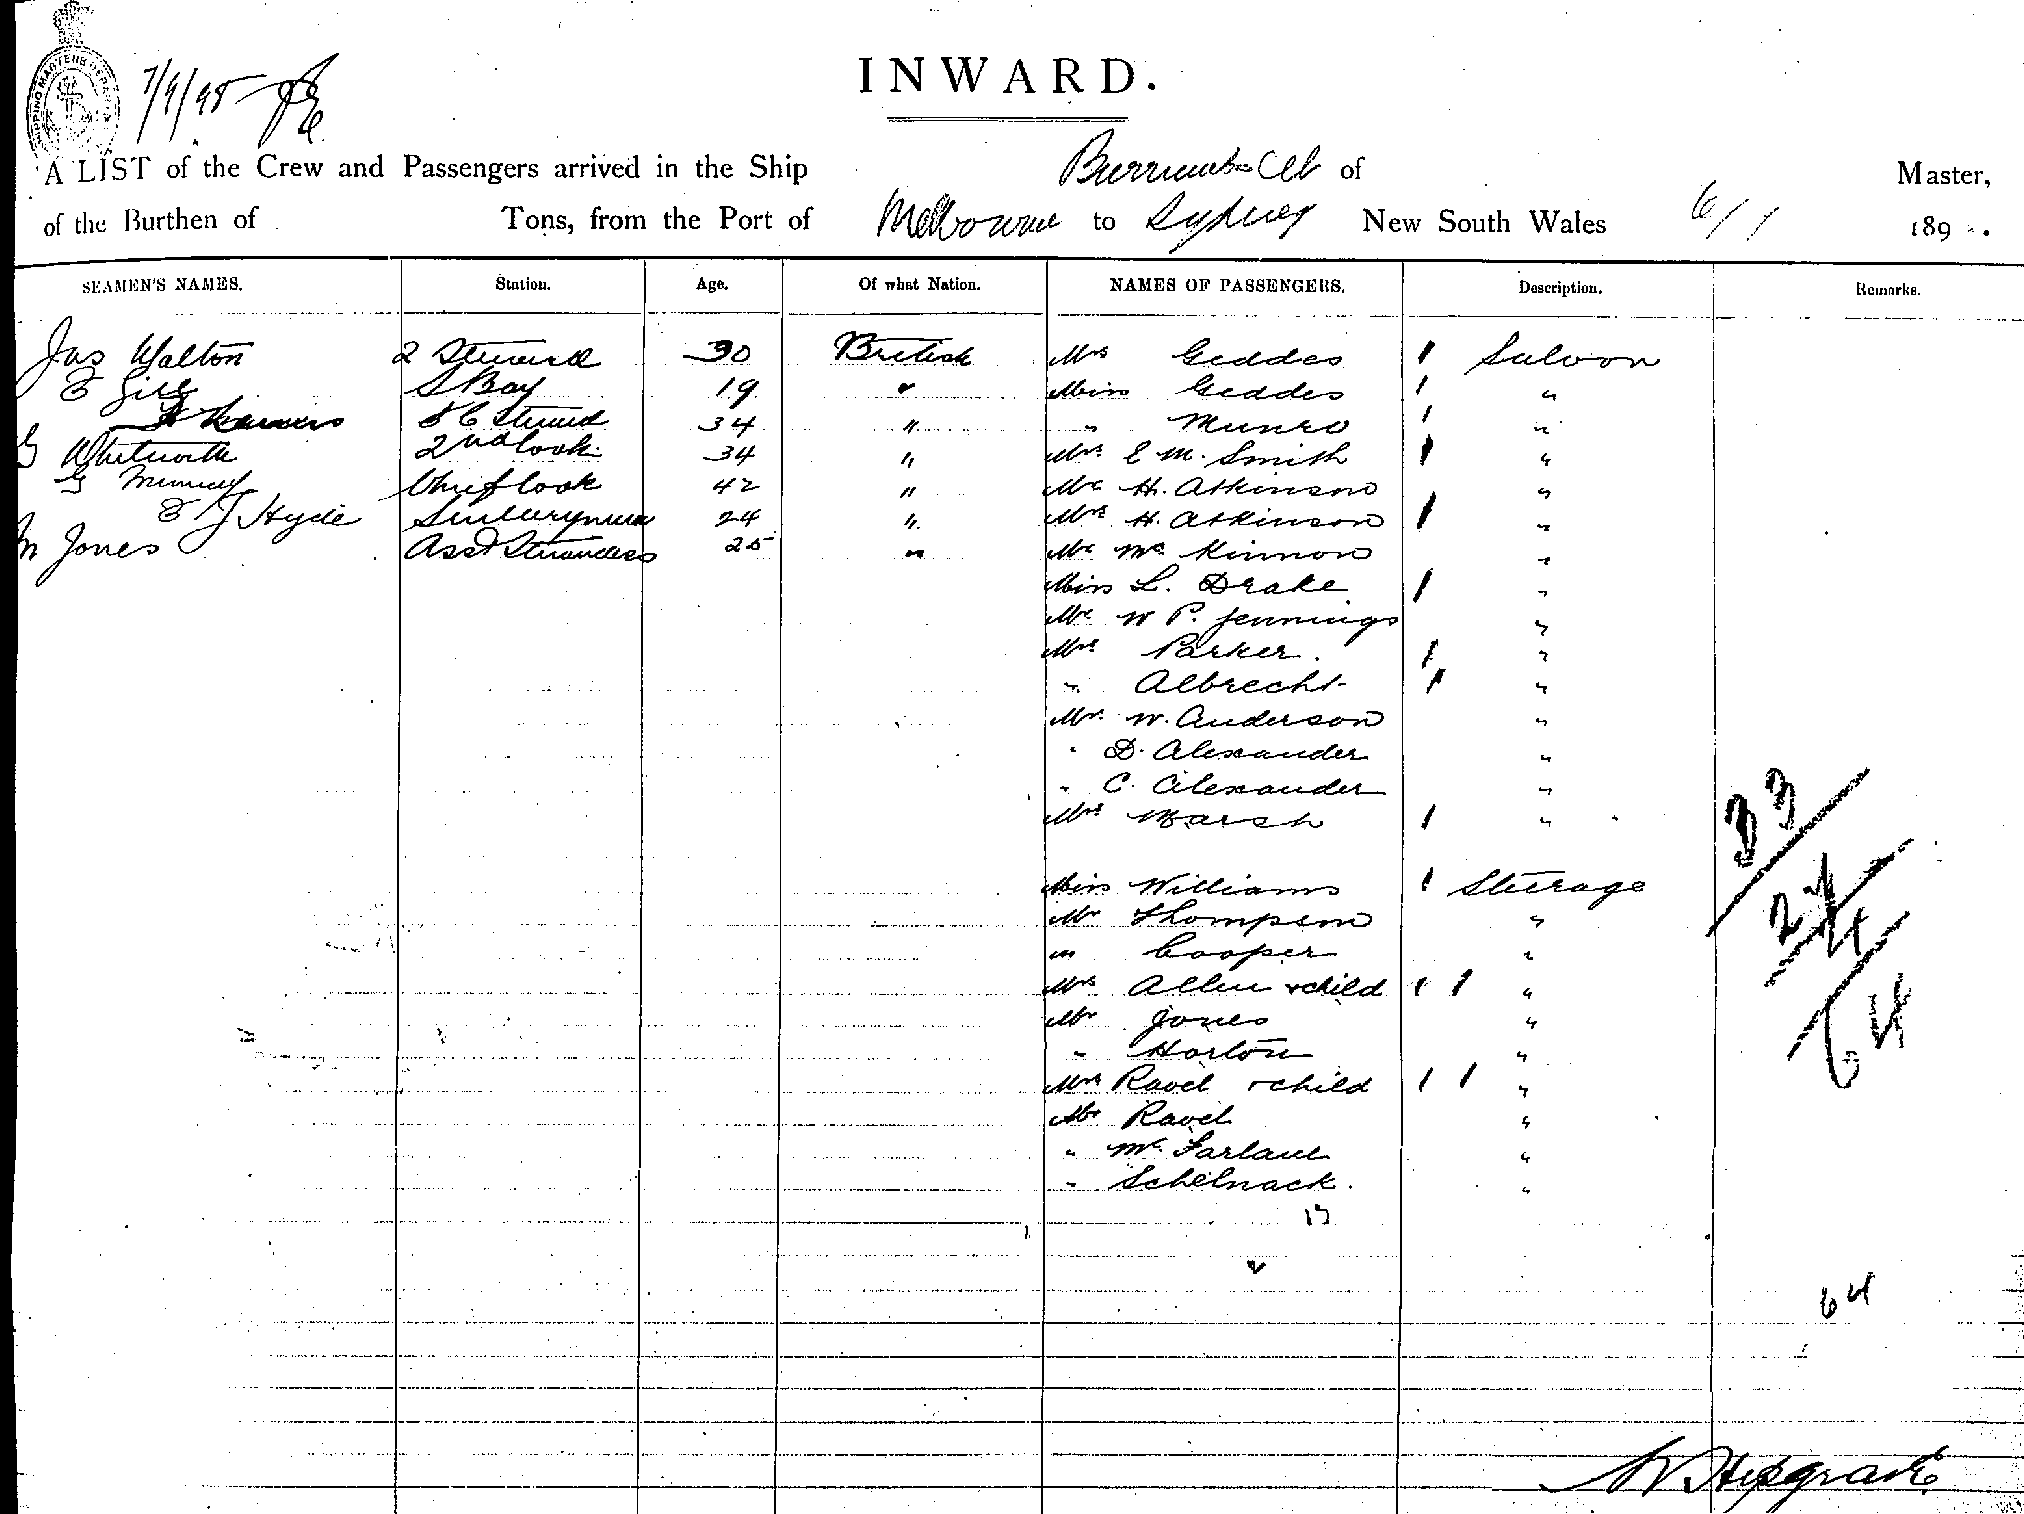 INWARD.
7/9/95
A LIST of the Crew and Passengers arrived in the Ship of Master,
of the Burthen of Tons, from the Port of Melbourne to Sydney New South Wales 6/1 189
SEAMEN'S NAMES. Station. Age. Of what Nation. NAMES OF PASSENGERS. Description. Remarks.
Jas Walton 2 Steward 30 British Mrs Geddes 1 Saloon
S Boy 19 " Miss Geddes 1 "
34 " " Munro 1 "
G Whitworth 2nd Cook 34 " Mrs E M. Smith 1 "
G Murray Chief Cook 42 " Mr H. Atkinson "
E J Hyde 24 " Mrs H. Atkinson 1 "
M Jones Asst Stewardess 25 " Mr Mc Kinnon "
Miss L. Drake 1 "
Mr W P. Jennings "
Mrs Parker. 1 "
" Albrecht 1 "
Mr. W. Anderson "
" D. Alexander "
" C. Alexander "
Mrs Marsh 1 "
33
Miss Williams 1 Steerage
Mr Thompson "
24
" Cooper "
Mrs Allen & child 1 1 "
Mr Jones "
64
" Horton "
Mrs Ravel & child 1 1 "
Mr Ravel "
" Mc Farlane "
" Schelnack. "
17
64